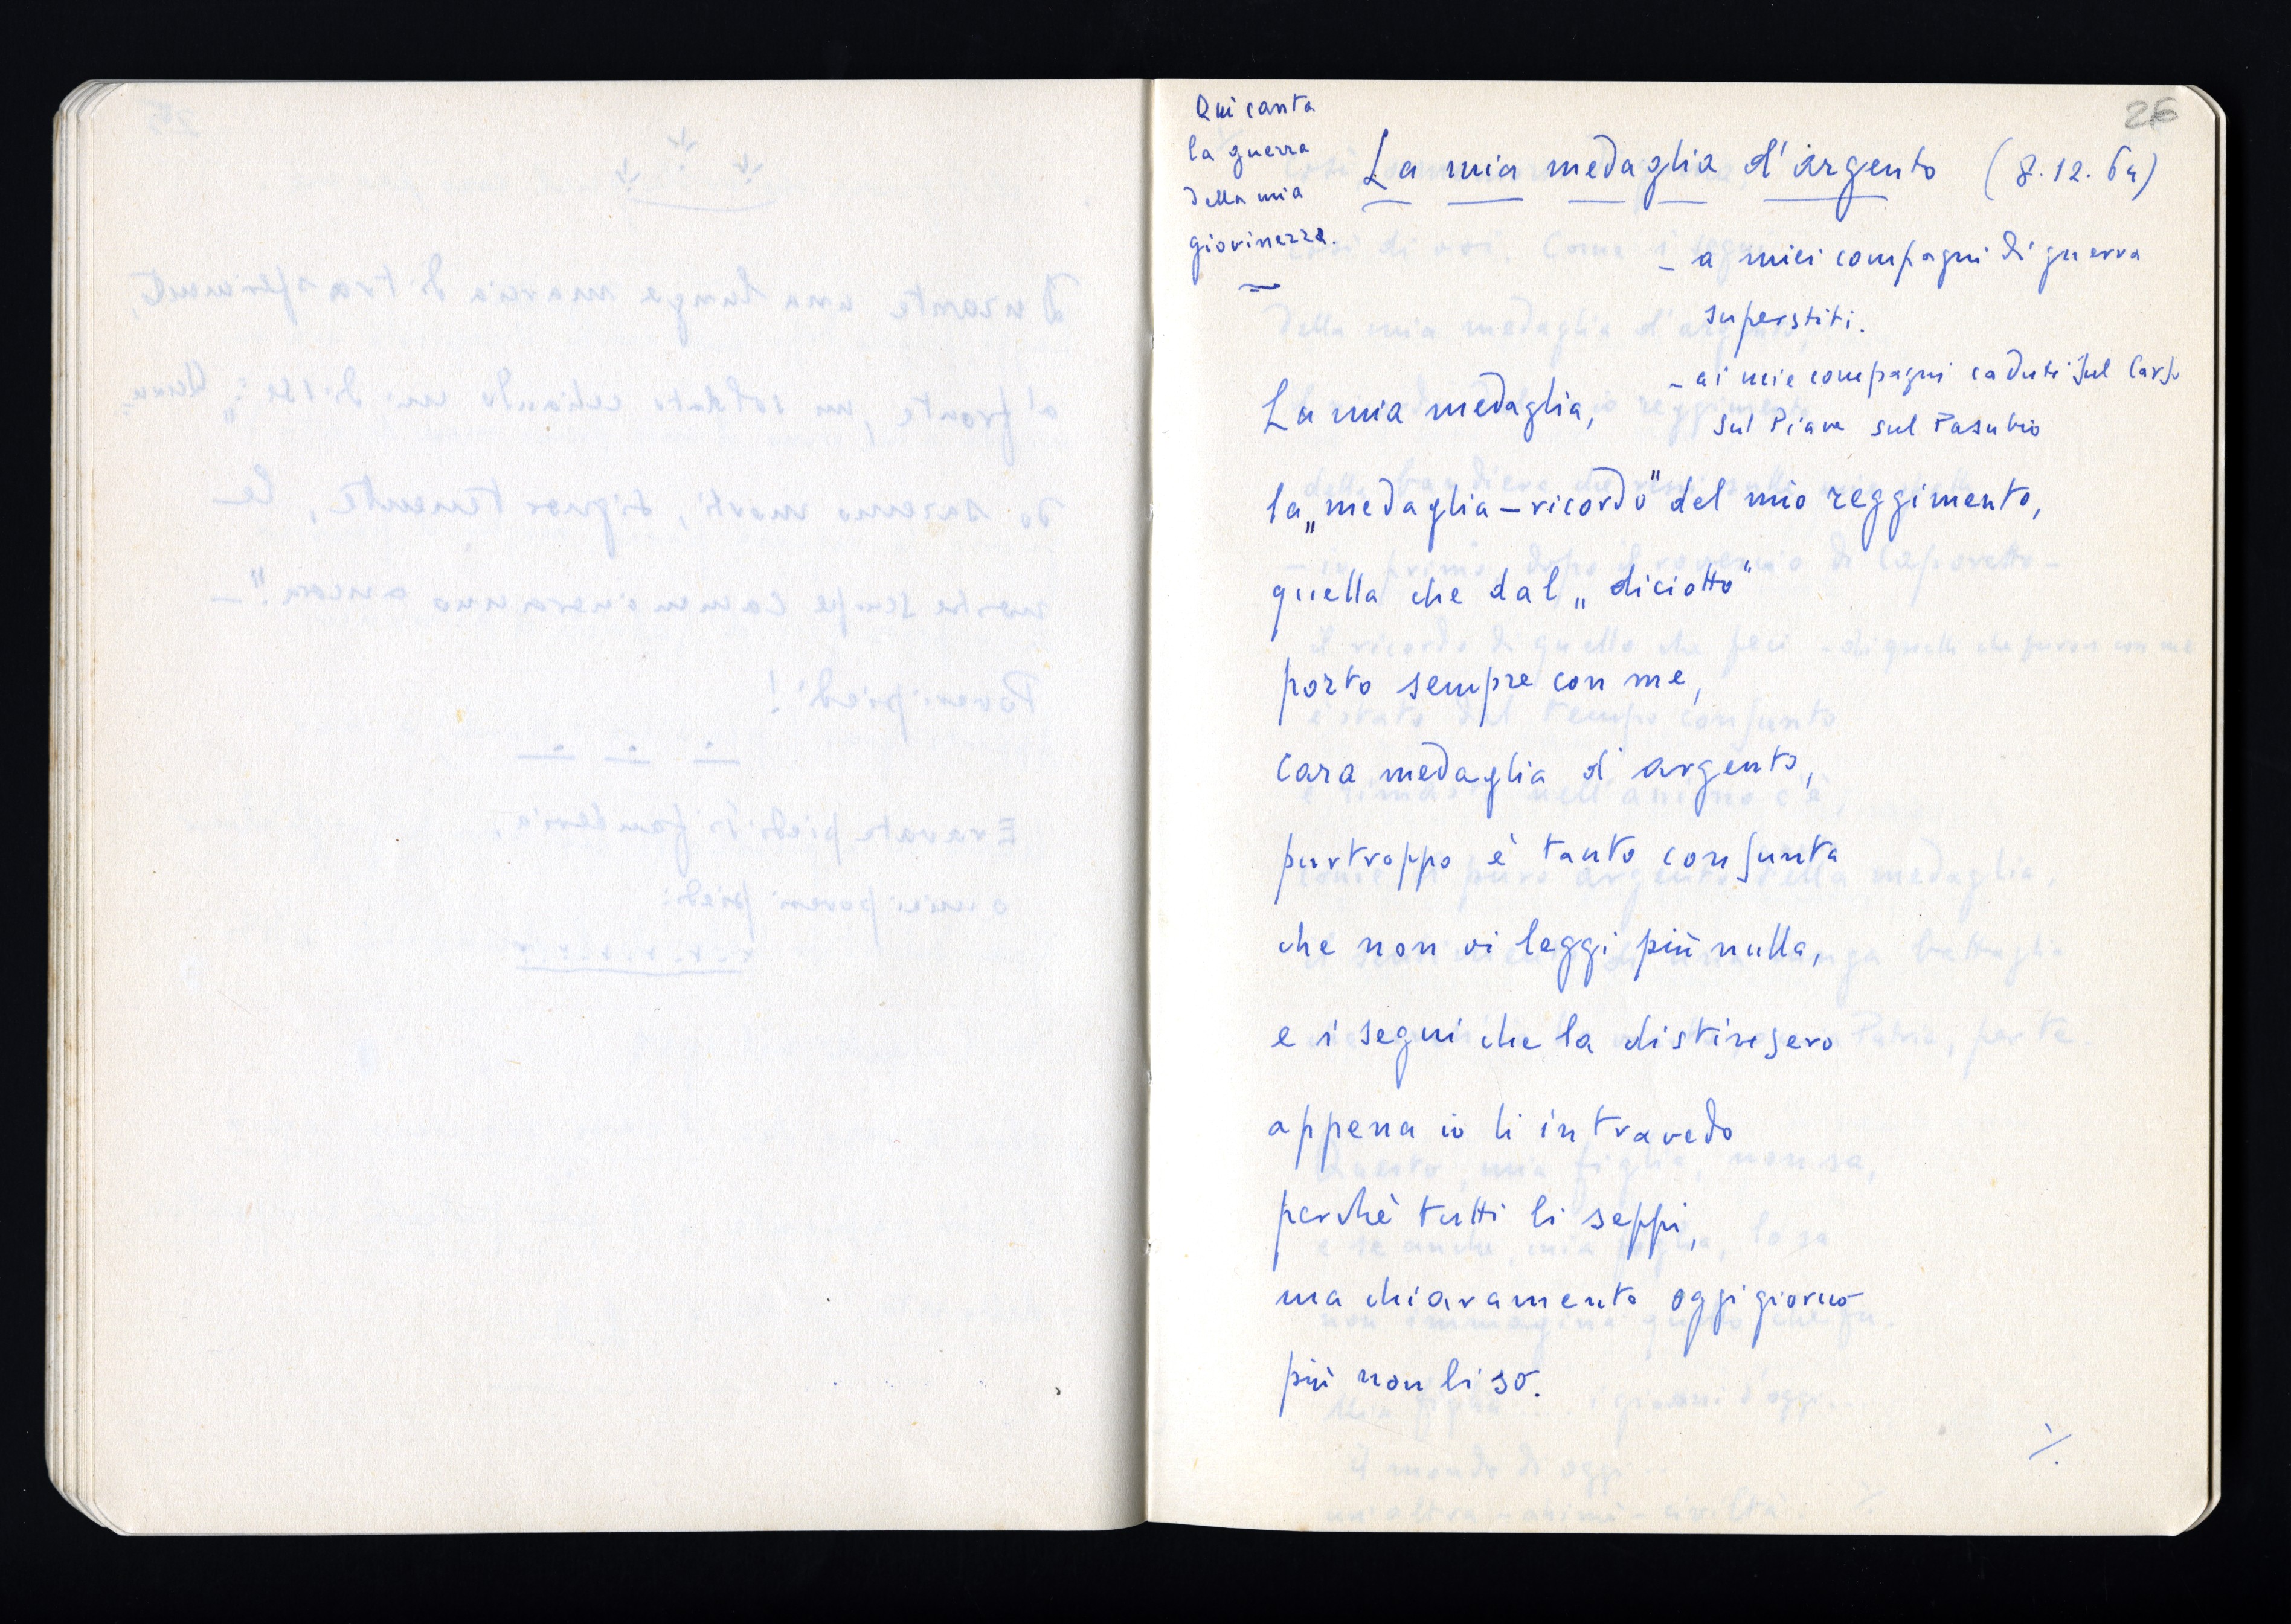 26
Qui canta
la guerra
della mia
giovinezza.
La mia medaglia d'argento (8.12.64)
- a miei compagni di guerra
superstiti.
- ai mie compagni caduti sul Carso
sul Piave sul Pasubio
La mia medaglia,
la „medaglia-ricordo" del mio reggimento,
quella che dal „diciotto"
porto sempre con me,
cara medaglia d'argento,
purtroppo è tanto consunta
che non vi leggi più nulla,
e i segni che la distinsero
appena io li intravedo
perchè tutti li seppi,
ma chiaramente oggigiorno
più non li so.
./.